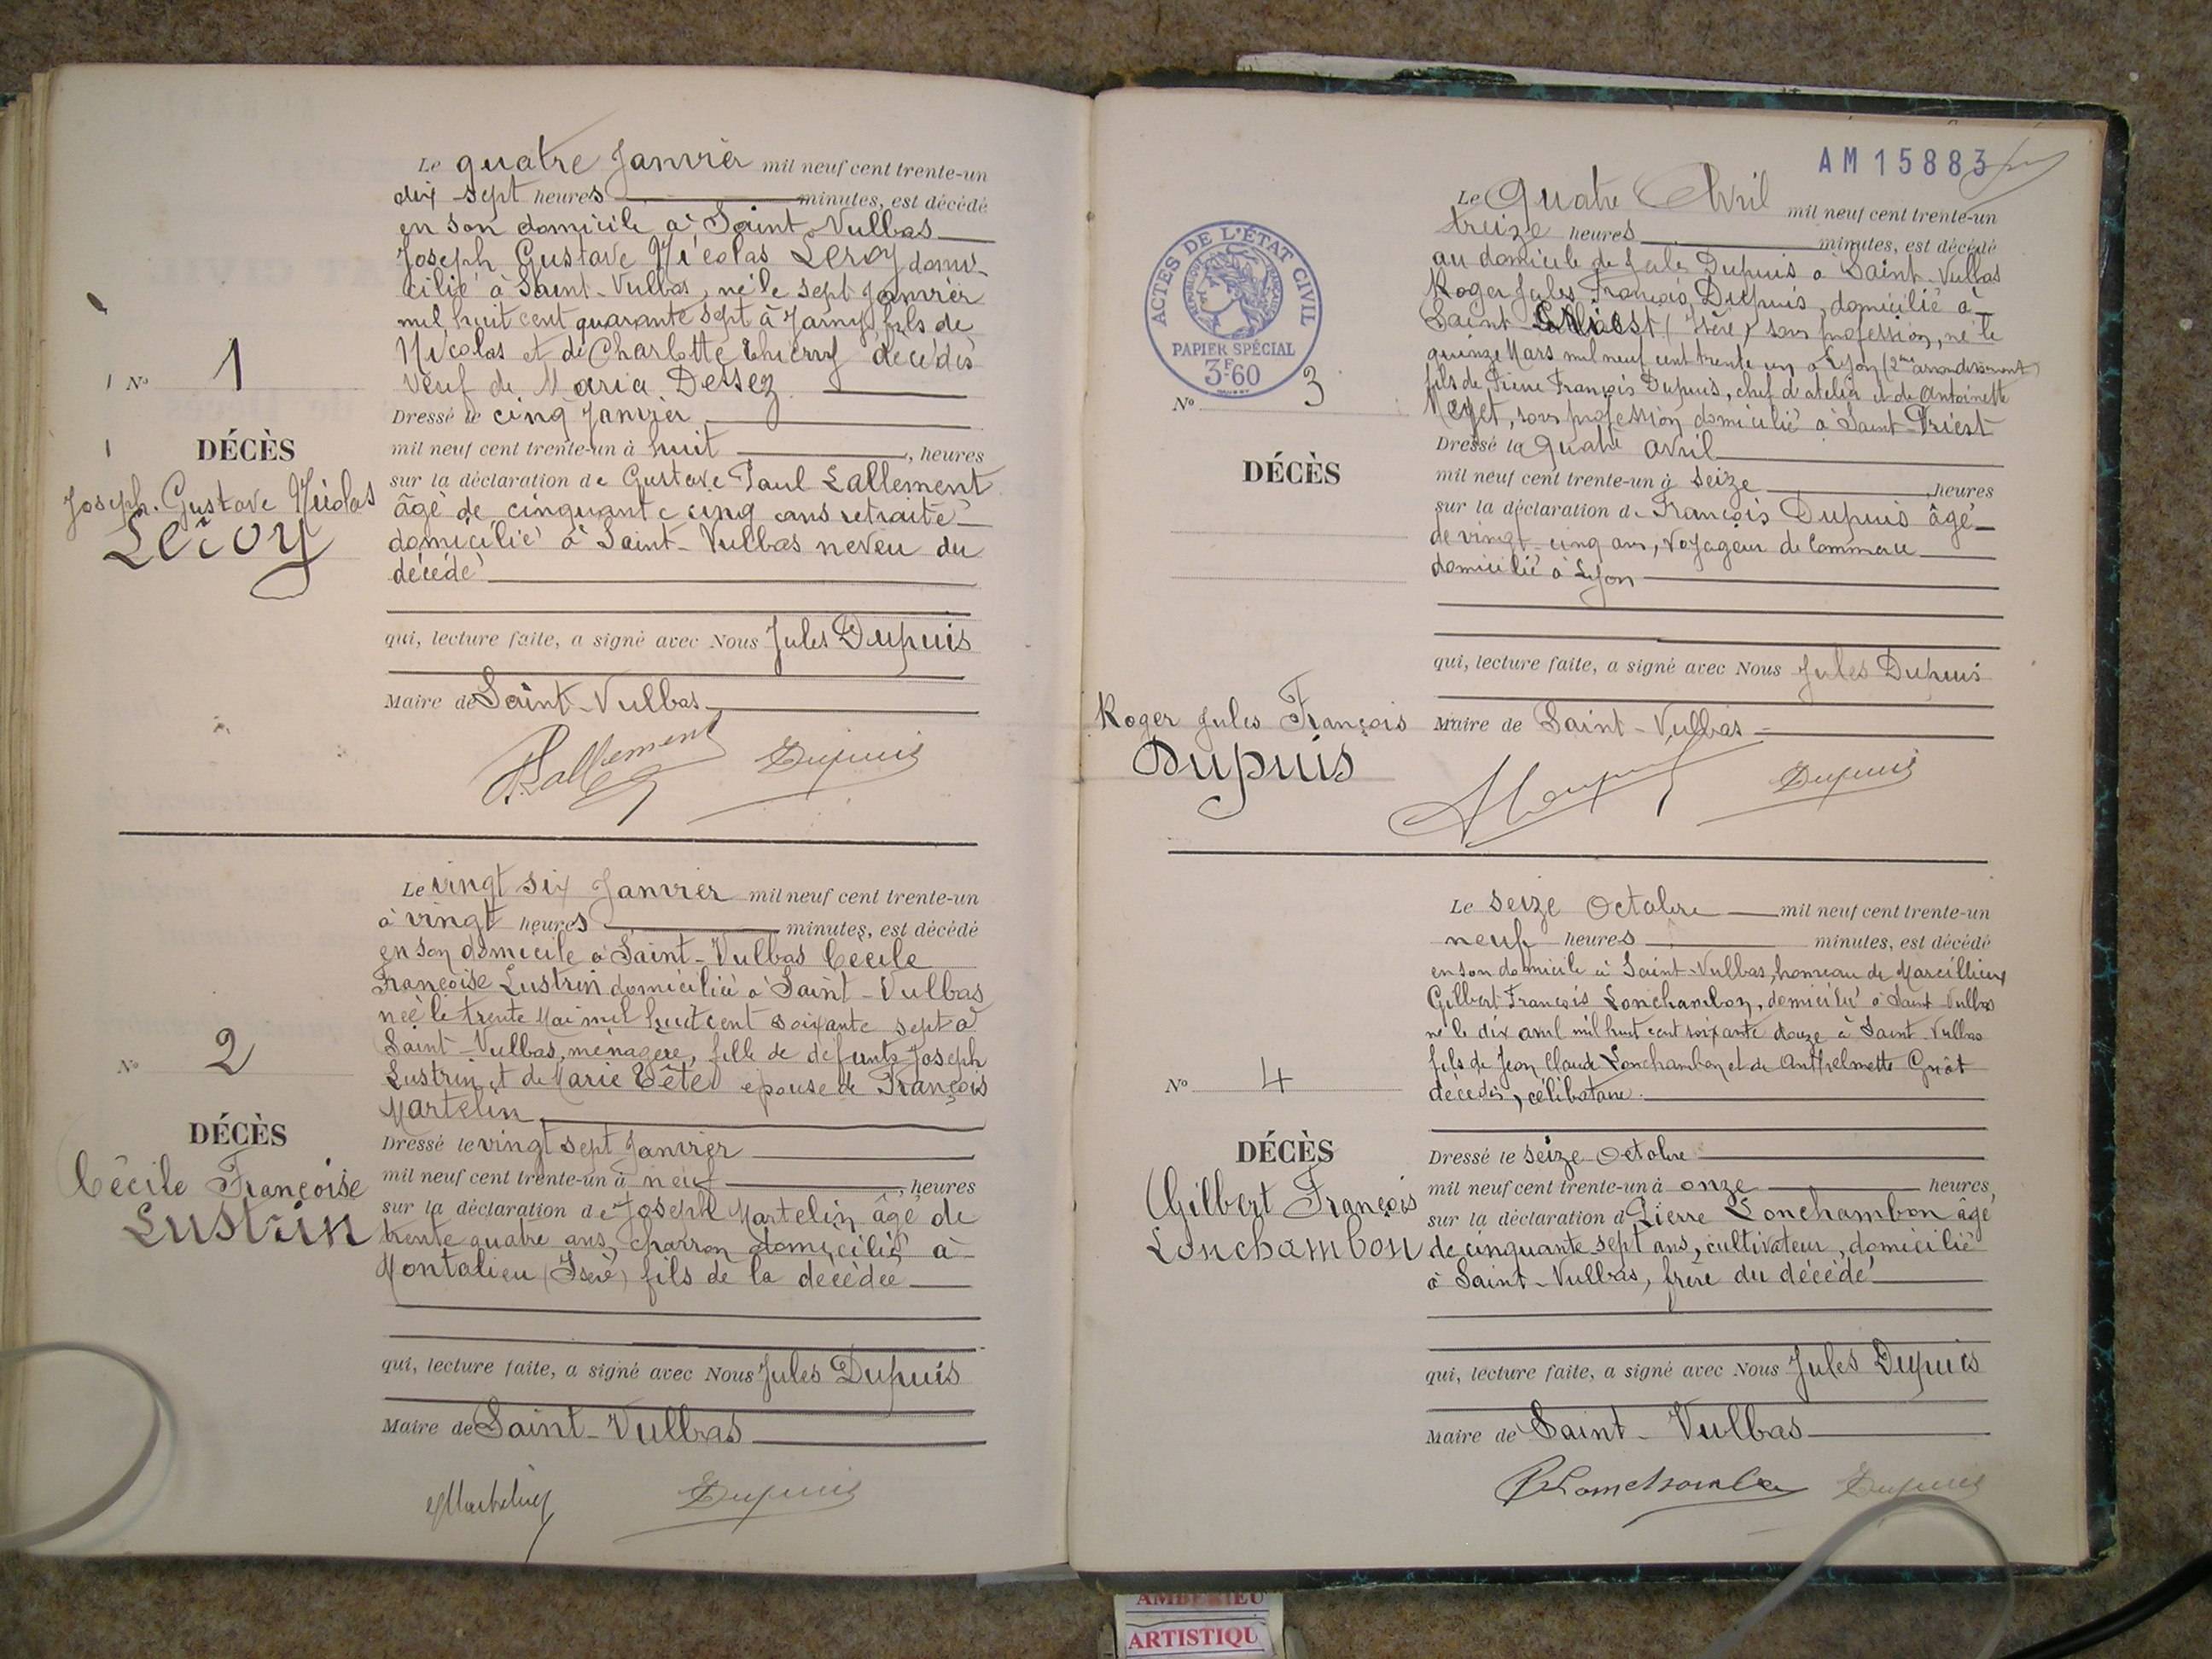 Le quatre Janvier mil neuf cent trente-un
dix sept heures minutes, est décédé
en son domicile à Saint-Vulbas
Joseph Gustave Nicolas Leroy domi-
cilié à Saint-Vulbas, né le sept Janvier
mil huit cent quarante sept à Jarny fils de
Nicolas et de Charlotte Thierry décédés
Veuf de Maria Dessez
Dressé le cinq Janvier
mil neuf cent trente-un à huit, heures
sur la déclaration de Gustave Paul Lallement
âgé de cinquante cinq ans retraité
domicilié à Saint-Vulbas neveu du
décédé
qui, lecture faite, a signé avec Nous Jules Dupuis
Maire de Saint-Vulbas
Lallement Dupuis
No 1
DÉCÈS
Joseph. Gustave Nicolas
Leroy
Le vingt six Janvier mil neuf cent trente-un
à vingt heures minutes, est décédé
en son domicile à Saint-Vulbas Cécile
Françoise Lustrin domiciliée à Saint-Vulbas
née le trente Mai mil huit cent soixante sept à
Saint-Vulbas, ménagère, fille de défunts Joseph
Lustrin et de Marie Tête épouse de François
Martelin
Dressé le vingt sept Janvier
mil neuf cent trente-un à neuf, heures
sur la déclaration de Joseph Martelin âgé de
trente quatre ans, charron domicilié à
Montalieu (Isère) fils de la décédée
qui, lecture faite, a signé avec Nous Jules Dupuis
Maire de Saint-Vulbas
Martelin Dupuis
No 2
DÉCÈS
Cécile Françoise
Lustrin
AM 15883
ACTES DE L'ÉTAT CIVIL
RÉPUBLIQUE FRANÇAISE
PAPIER SPÉCIAL
3F60
Le Quatre Avril mil neuf cent trente-un
treize heures minutes, est décédé
au domicile de Jules Dupuis à Saint-Vulbas
Roger Jules François Dupuis, domicilié à
Saint-Priest (Isère) sans profession, né le
quinze Mars mil neuf cent trente un à Lyon (2me arrondissement)
fils de Pierre François Dupuis, chef d'atelier et de Antoinette
Meyet, sans profession domicilié à Saint-Priest
Dressé le quatre avril
mil neuf cent trente-un à seize, heures
sur la déclaration de François Dupuis âgé
de vingt-cinq ans, Voyageur de Commerce
domicilié à Lyon
qui, lecture faite, a signé avec Nous Jules Dupuis
Maire de Saint-Vulbas
Dupuis
No 3
DÉCÈS
Roger Jules François
Dupuis
Le seize Octobre mil neuf cent trente-un
neuf heures minutes, est décédé
en son domicile à Saint-Vulbas, hameau de Marcillieux
Gilbert François Lonchambon, domicilié à Saint-Vulbas
né le dix avril mil huit cent soixante douze à Saint-Vulbas
fils de Jean Claude Lonchambon et de Anthelmette Guôt
décédés, célibataire.
Dressé le seize Octobre
mil neuf cent trente-un à onze heures,
sur la déclaration d Pierre Lonchambon âgé
de cinquante sept ans, cultivateur, domicilié
à Saint-Vulbas, frère du décédé
qui, lecture faite, a signé avec Nous Jules Dupuis
Maire de Saint-Vulbas
Dupuis
No 4
DÉCÈS
Gilbert François
Lonchambon
AMBERIEU
ARTISTIQU